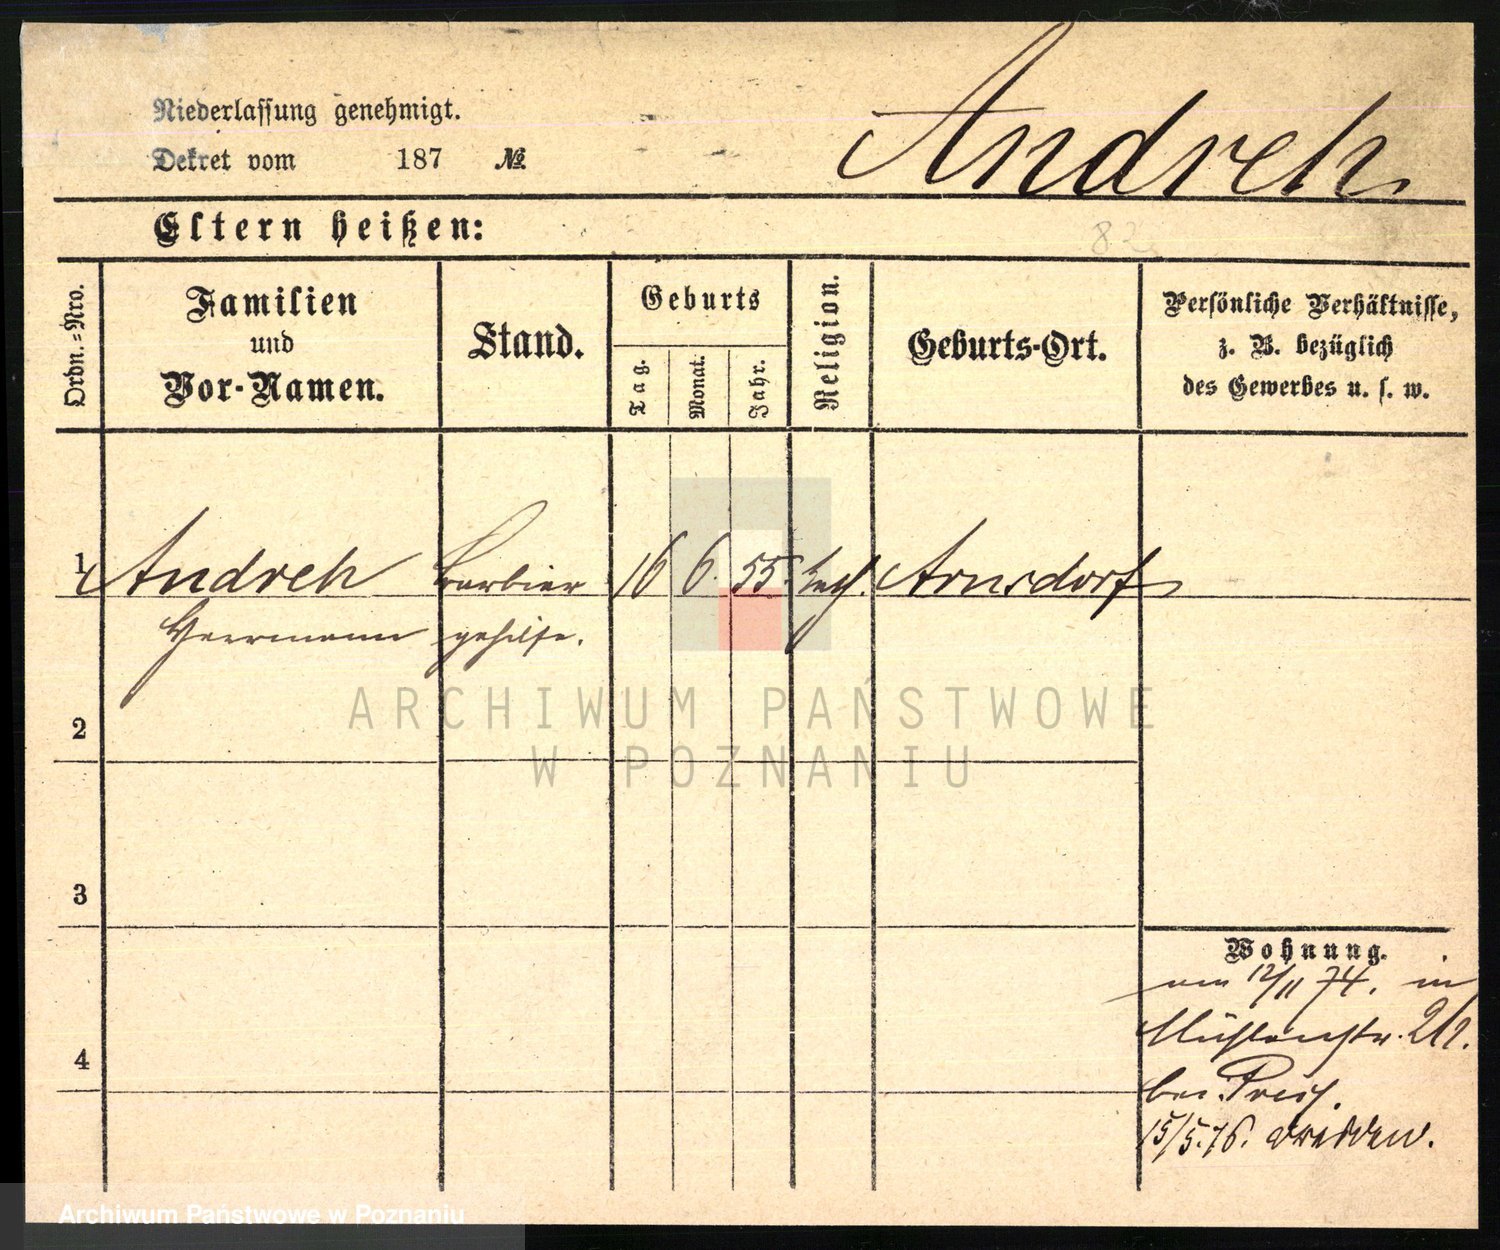 Andreh
Niederlassung genehmigt.
Dekret vom 187 №
Eltern heißen:
82
Ordn.=Nro.
Familien
und
Vor-Namen.
Stand.
Geburts
Tag.
Monat.
Jahr.
Religion.
Geburts-Ort.
Persönliche Verhältnisse,
z. B. bezüglich
des Gewerbes u. s. w.
1 Andreh Barbier 16 6. 55. Arnsdorf
Herrmann gehilfe.
ARCHIWUM PAŃSTWOWE
W POZNANIU
2
3
4
Wohnung.
am 12/11 74. in
Mühlenstr.
bei
15/5.76. Dresden.
Archiwum Państwowe w Poznaniu